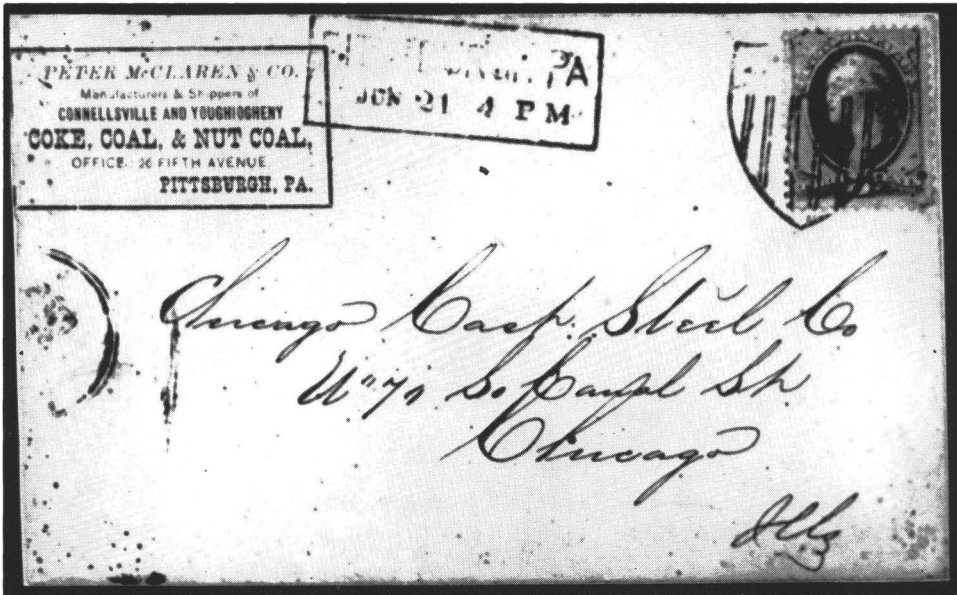 PETER McCLAREN & CO.
Manufacturers & Shippers of
CONNELLSVILLE AND YOUGHIOGHENY
COKE, COAL, & NUT COAL,
OFFICE 26 FIFTH AVENUE.
PITTSBURGH, PA.
PA
JUN 21 4 PM
Chicago Cast Steel Co
So Canal St
Chicago
Ills